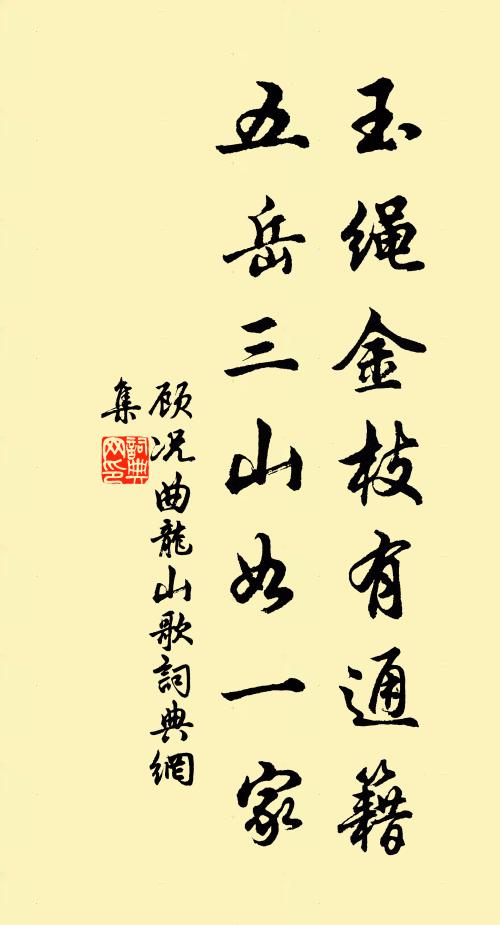 玉绳金枝有通籍
五岳三山如一家
顾况曲龍山歌詞典網
集
詞典网印